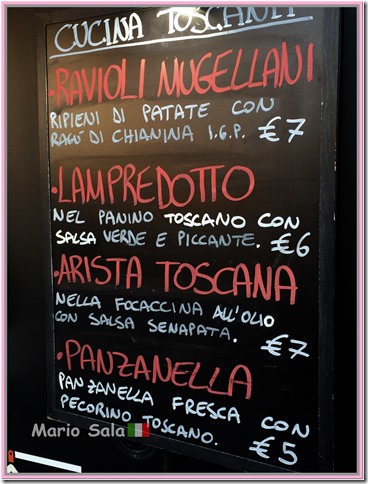 CUCINA TOSCANA
• RAVIOLI MUGELLANI
RIPIENI DI PATATE CON
RAGÚ DI CHIANINA I.G.P. €7
• LAMPREDOTTO
NEL PANINO TOSCANO CON
SALSA VERDE E PICCANTE. €6
• ARISTA TOSCANA
NELLA FOCACCINA ALL'OLIO
CON SALSA SENAPATA. €7
• PANZANELLA
PANZANELLA FRESCA CON
PECORINO TOSCANO. €5
Mario Sala